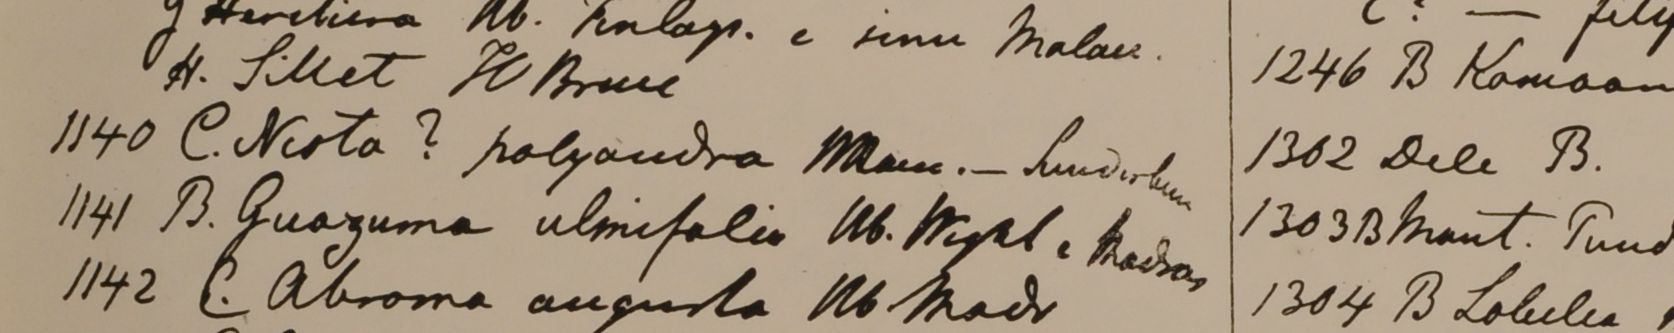 g Heritiera Hb. Finlays. e sinu Malacc.
H. Sillet WBruce
1140 C. Niota ? polyandra Mss. — Sunderbun
1141 B. Guazuma ulmifolia Hb. Wight e Madras
1142 C. Abroma augusta Hb Madr
1246 B Kamaon
1302 Dele B.
1303 B Mont.
1304 B Lobelia